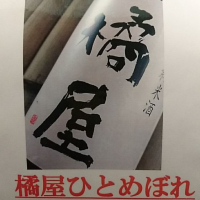 橘屋
純米酒
橘屋ひとめぼれ